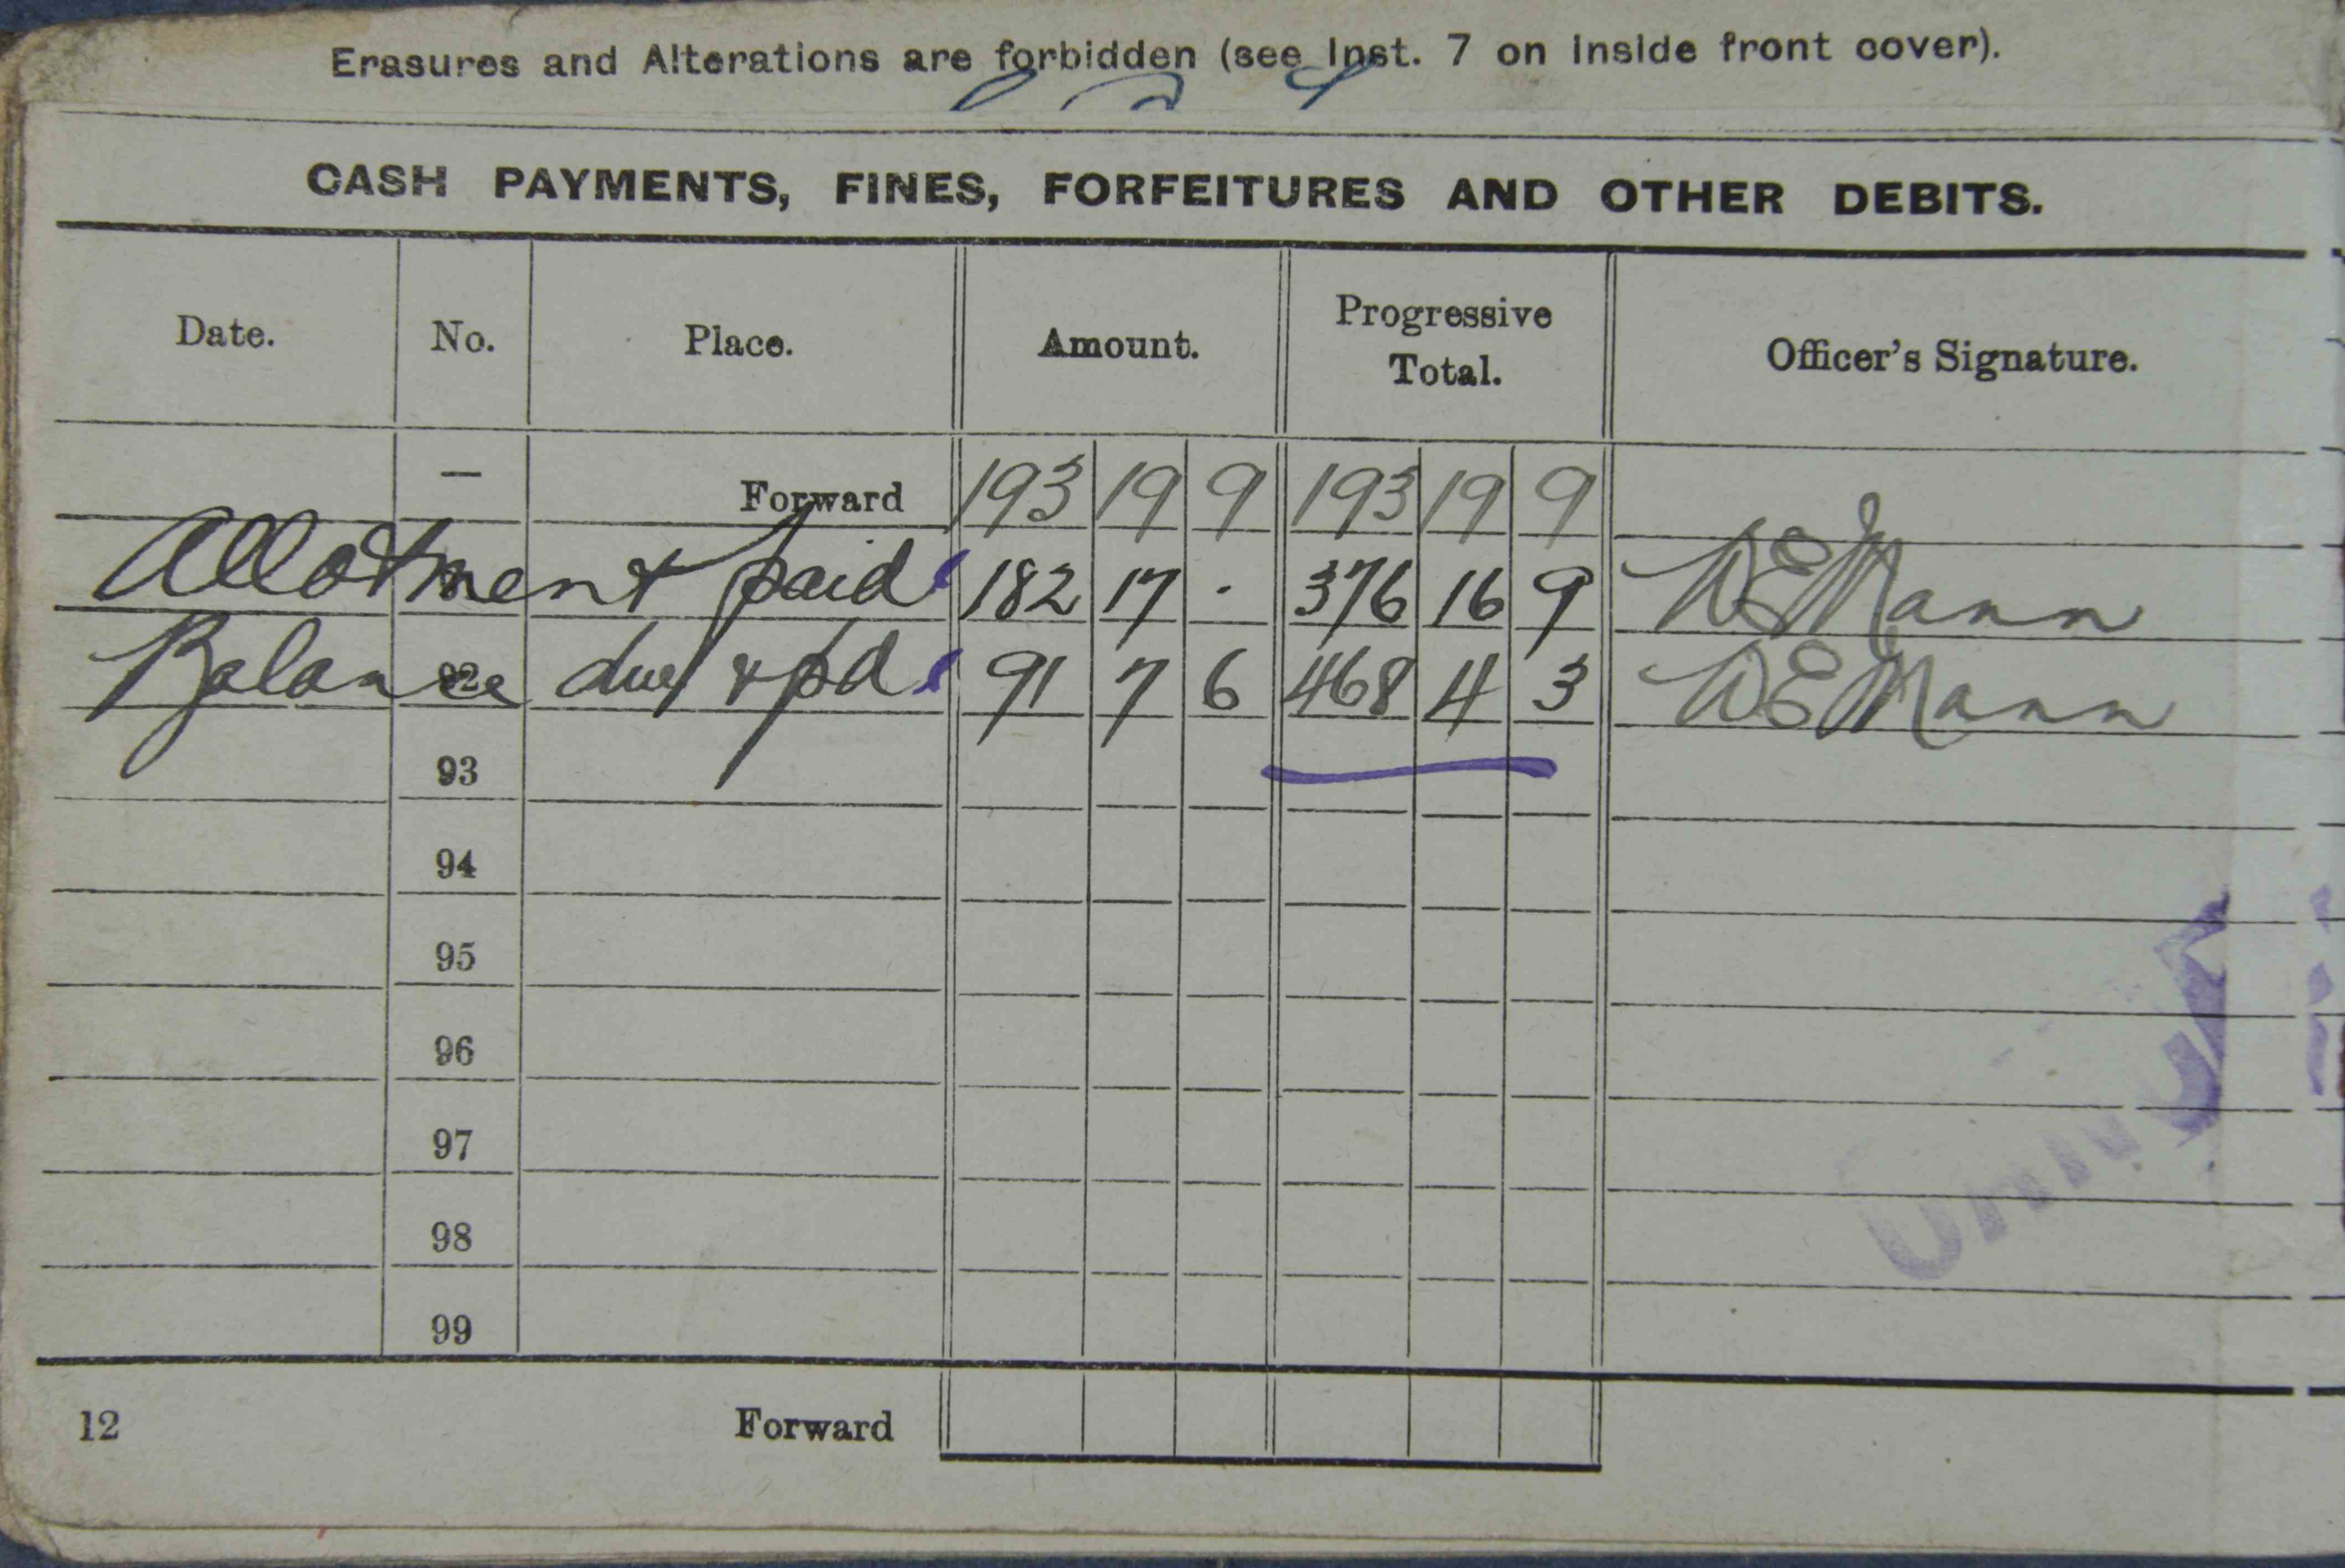 Erasures and Alterations are forbidden (see Inst. 7 on inside front cover).
CASH PAYMENTS, FINES, FORFEITURES AND OTHER DEBITS.
Date. No. Place. Amount. Progressive Total. Officer's Signature.
— Forward 193 19 9 193 19 9
Allotment paid 182 17 · 376 16 9 W E Mann
Balance 92 due & pd 91 7 6 468 4 3 W E Mann
93
94
95
96
97
98
99
12 Forward